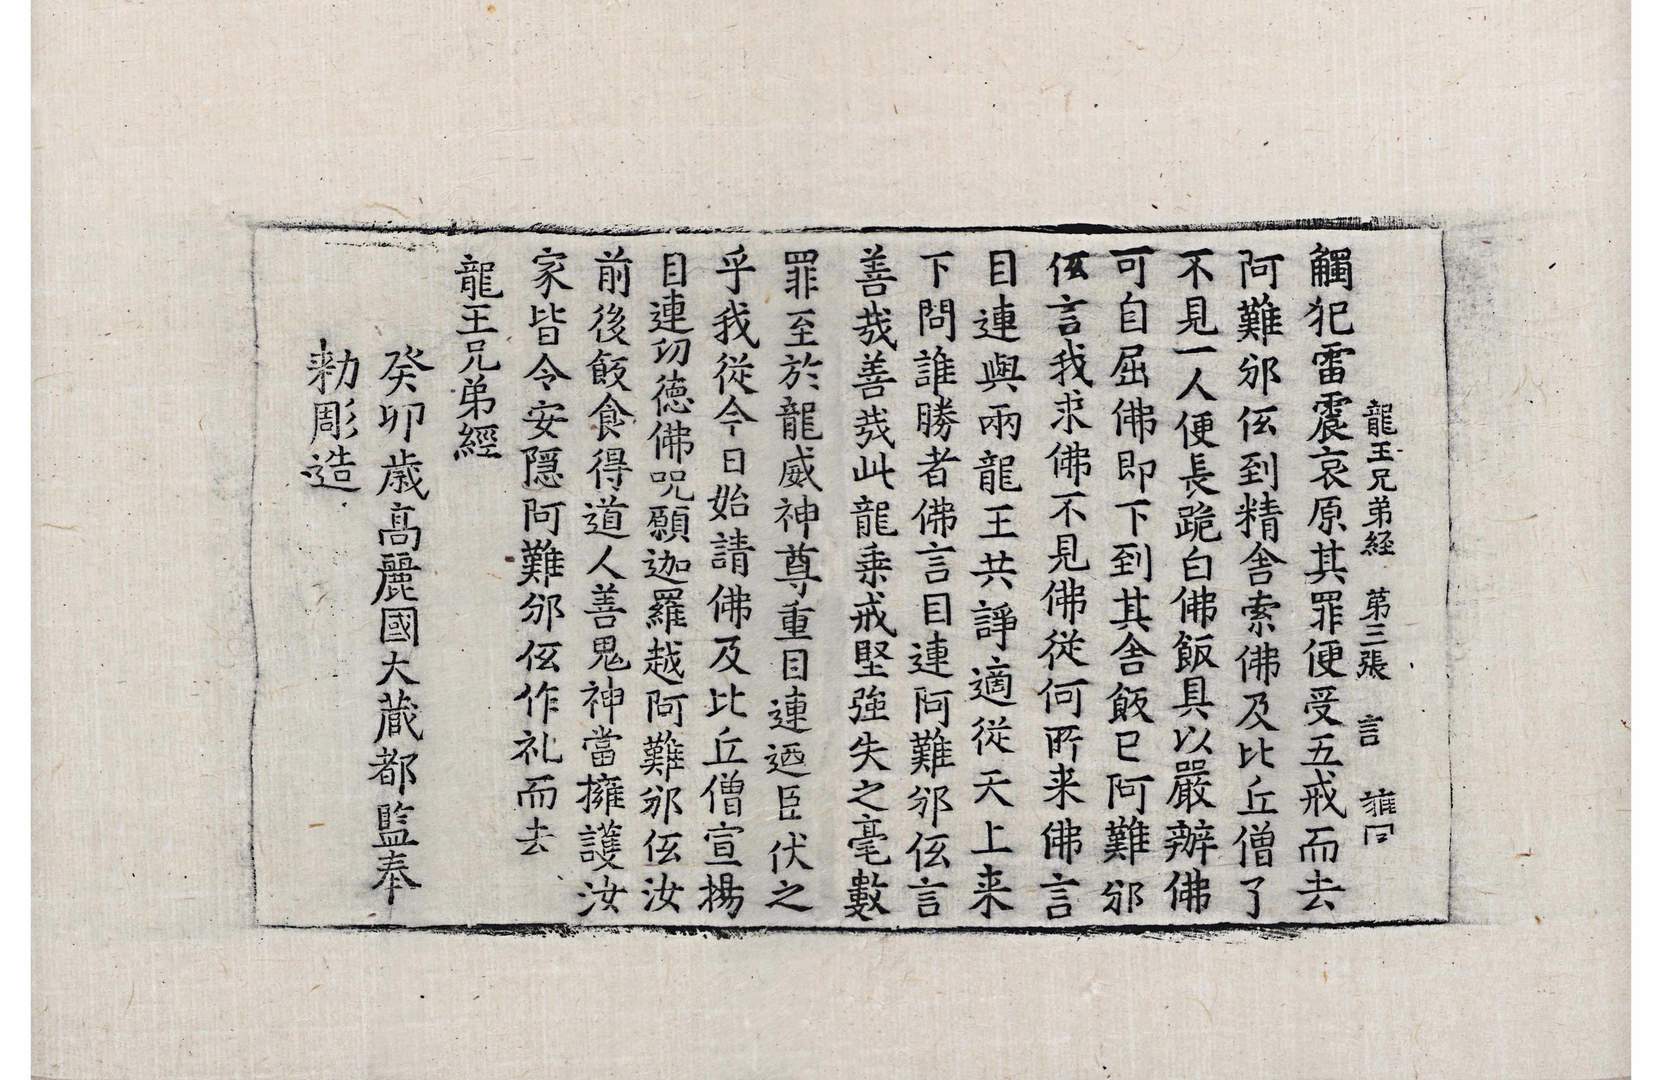 龍王兄弟経 第三張 言
觸犯雷震哀原其罪便受五戒而去
阿難邠仾到精舍索佛及比丘僧了
不見一人便長跪白佛飯具以嚴辦佛
可自屈佛即下到其舍飯已阿難邠
仾言我求佛不見佛從何所来佛言
目連與兩龍王共諍適從天上来
下問誰勝者佛言目連阿難邠仾言
善哉善哉此龍乗戒堅強失之毫數
罪至於龍威神尊重目連迺臣伏之
乎我從今日始請佛及比丘僧宣揚
目連功德佛呪願迦羅越阿難邠仾汝
前後飯食得道人善鬼神當擁護汝
家皆令安隱阿難邠仾作礼而去
龍王兄弟經
癸卯歳高麗國大藏都監奉
勑彫造